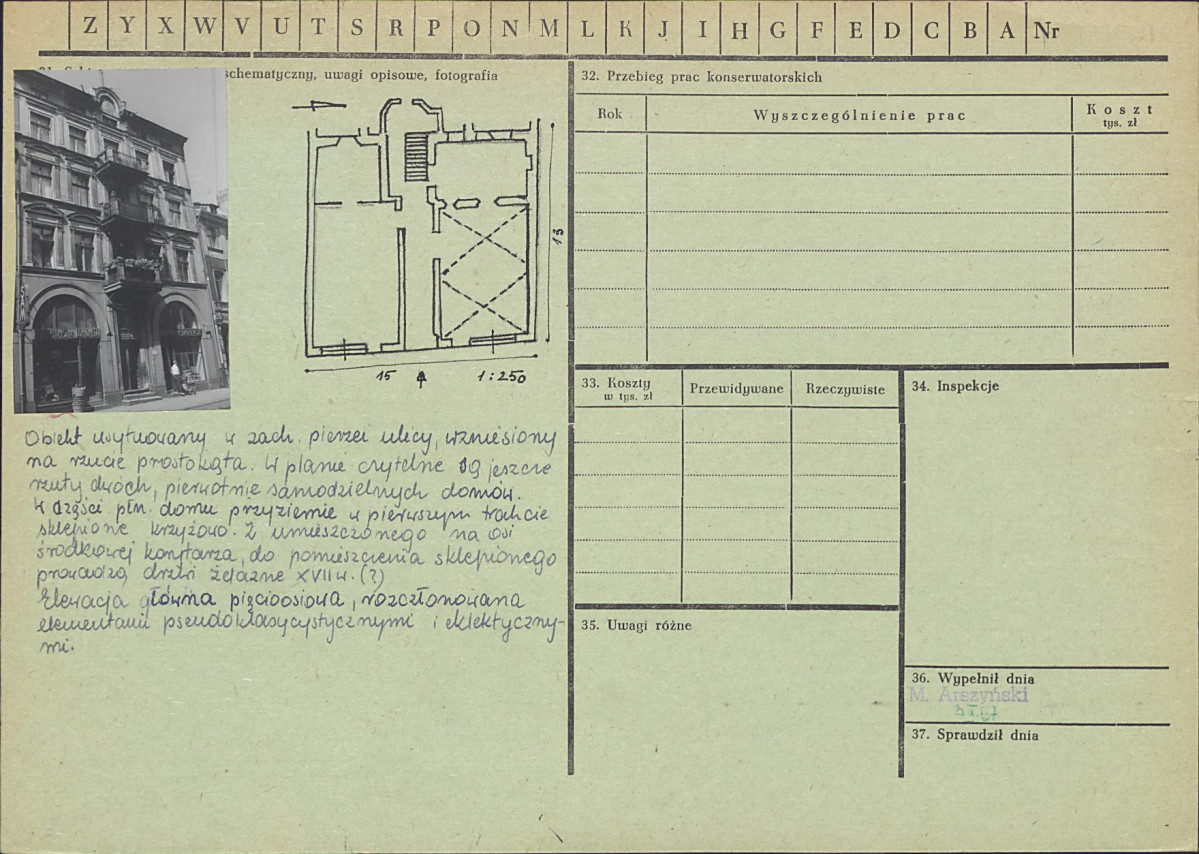 Z Y X W V U T S R P O N M L K J I H G F E D C B A Nr
schematyczny, uwagi opisowe, fotografia
13
15 1:250
Obiekt usytuowany w zach. pierzei ulicy, wzniesiony
na rzucie prostokąta. W planie czytelne są jeszcze
rzuty dwóch, pierwotnie samodzielnych domów.
W części płn. domu przyziemie w pierwszym trakcie
sklepione krzyżowo. Z umieszczonego na osi
środkowej korytarza, do pomieszczenia sklepionego
prowadzą drzwi żelazne XVII w. (?)
Elewacja główna pięcioosiowa, rozczłonowana
elementami pseudoklasycystycznymi i eklektyczny-
mi.
32. Przebieg prac konserwatorskich
Rok Wyszczególnienie prac Koszt
tys. zł
33. Koszty
w tys. zł
Przewidywane Rzeczywiste
34. Inspekcje
35. Uwagi różne
36. Wypełnił dnia
M. Arszyński
37. Sprawdził dnia